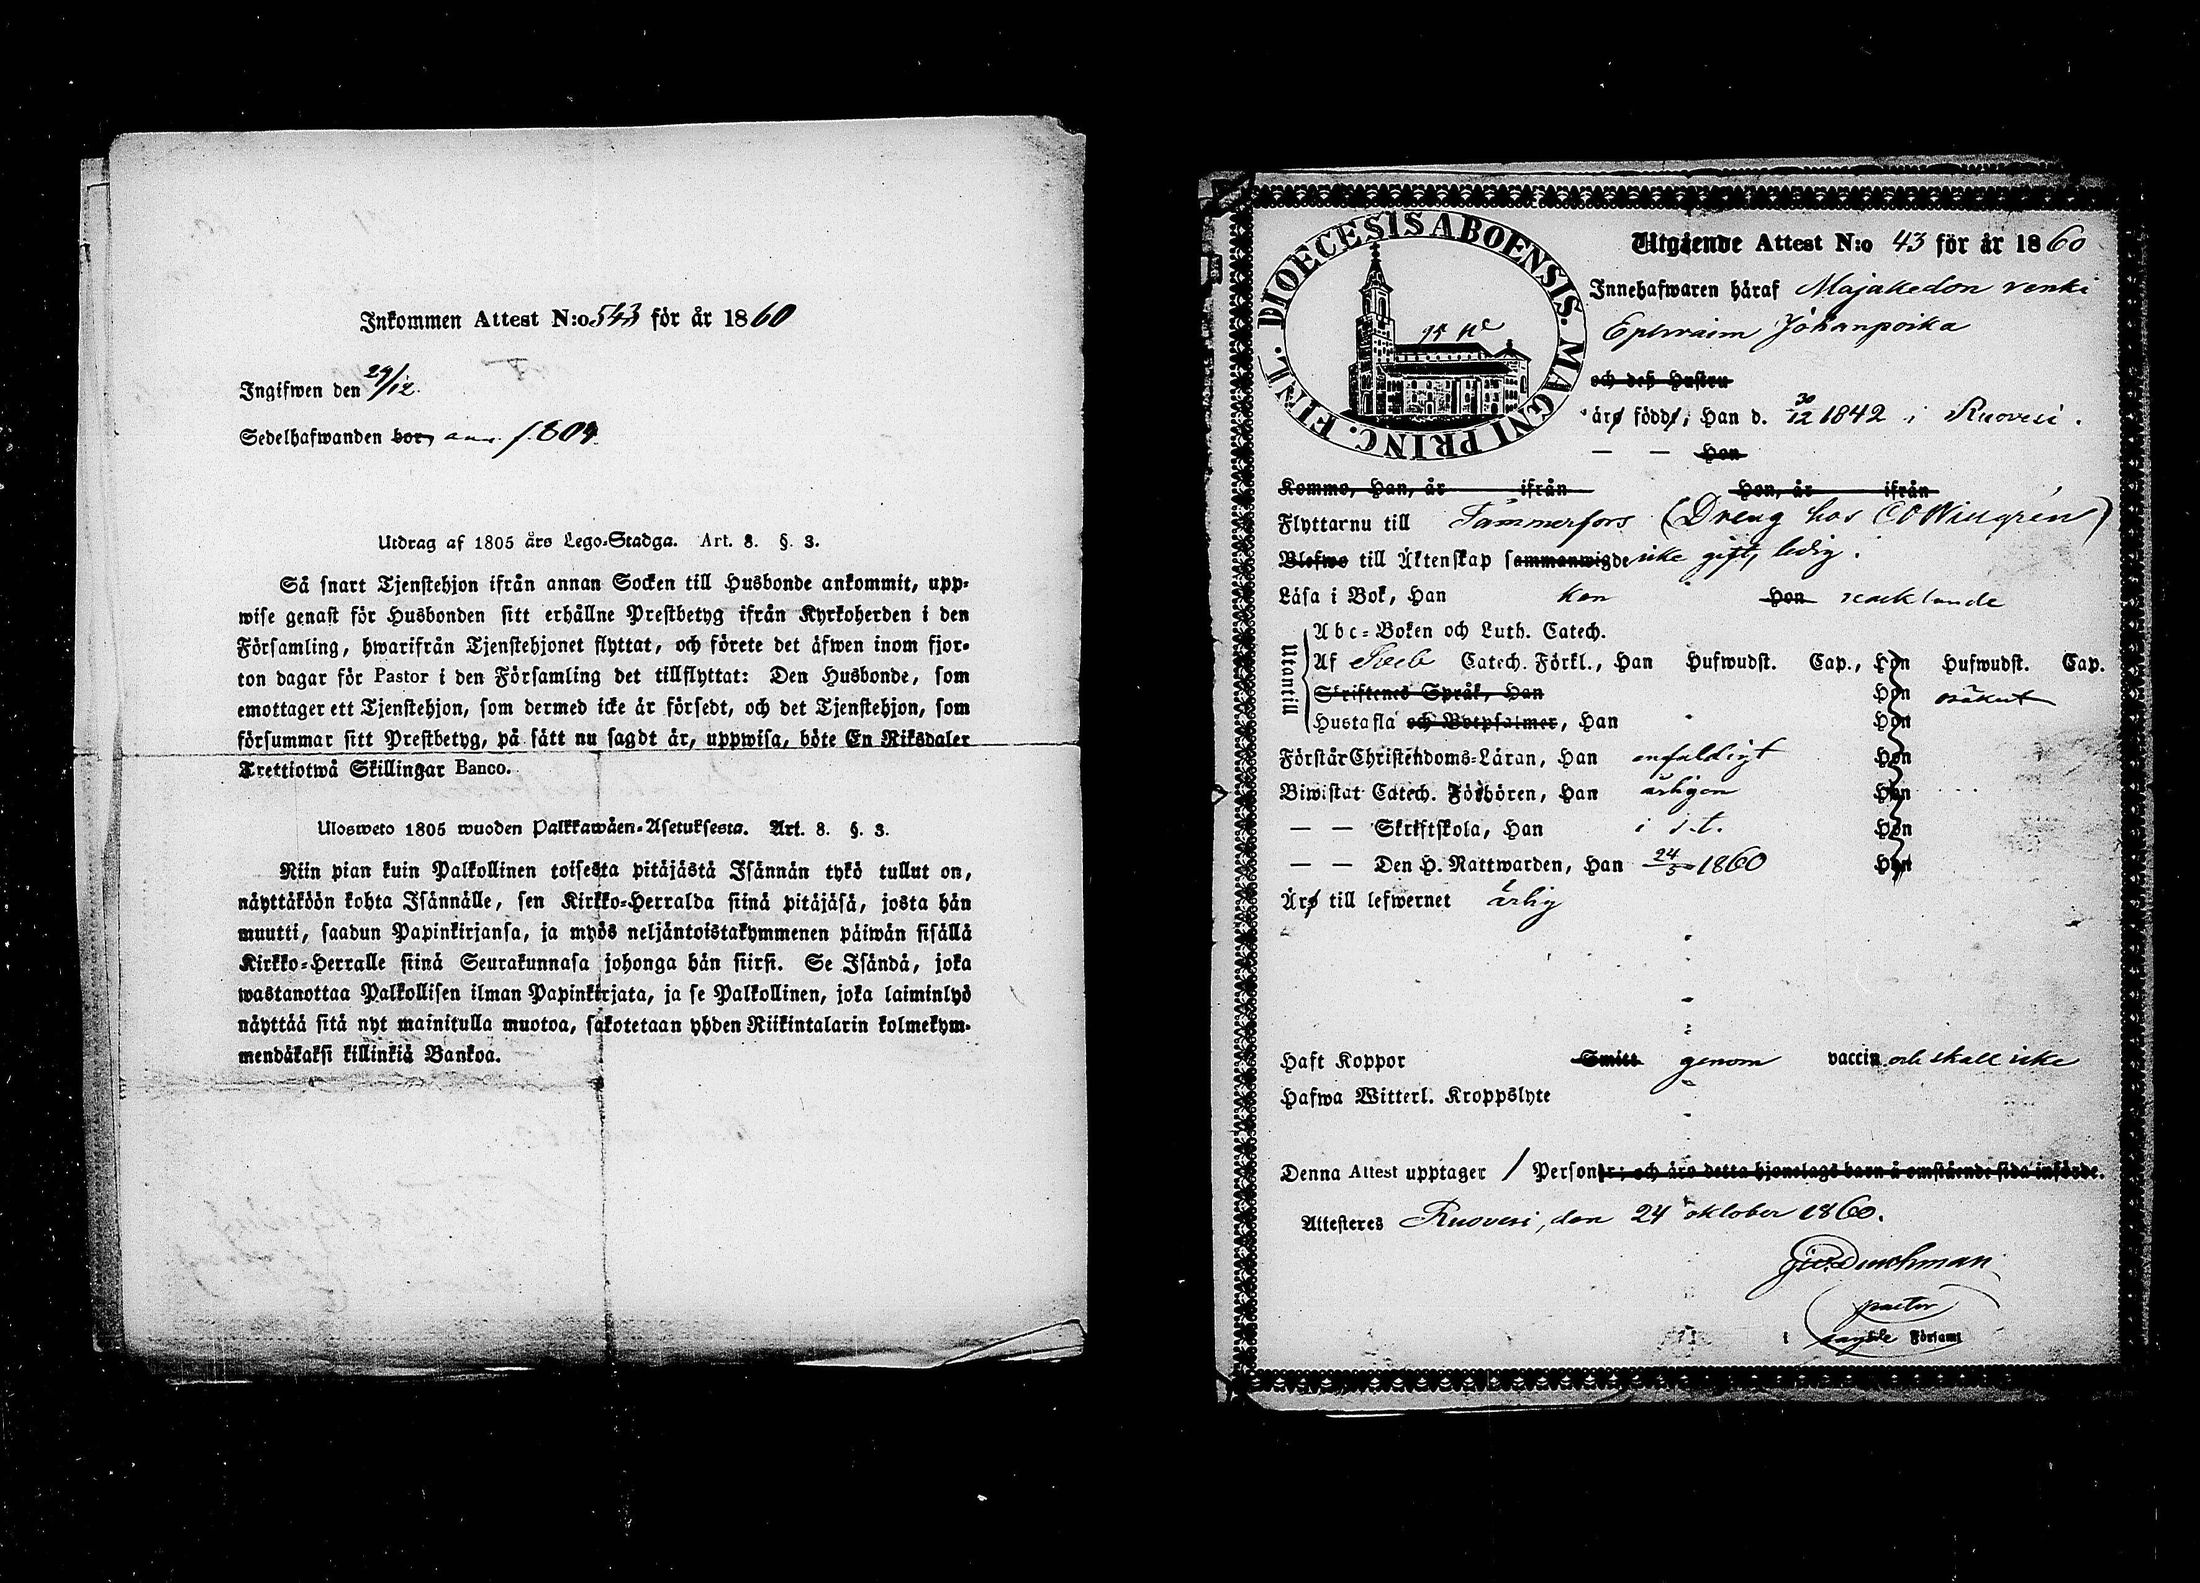 Inkommen Attest N:o 543 för år 1860
Ingifwen den 29/12
Sedelhafwanden bor, ann. f. 804.
Utdrag af 1805 års Lego-Stadga. Art. 8. §. 3.
Så snart Tjenstehjon ifrån annan Socken till Husbonde ankommit, upp-
wise genast för Husbonden sitt erhållne Prestbetyg ifrån Kyrkoherden i den
Församling, hwarifrån Tjenstehjonet flyttat, och förete det äfwen inom fjor-
ton dagar för Pastor i den Församling det tillflyttat: Den Husbonde, som
emottager ett Tjenstehjon, som dermed icke är försedt, och det Tjenstehjon, som
försummar sitt Prestbetyg, på sätt nu sagdt är, uppwisa, böte En Riksdaler
Trettiotwå Skillingar Banco.
Ulosweto 1805 wuoden Palkkawäen-Asetuksesta. Art. 8. §. 3.
Niin pian kuin Palkollinen toisesta pitäjästä Isännän tykö tullut on,
näyttäköön kohta Isännälle, sen Kirkko-Herralda siinä pitäjäsä, josta hän
muutti, saadun Papinkirjansa, ja myös neljäntoistakymmenen päiwän sisällä
Kirkko-Herralle siinä Seurakunnasa johonga hän siirsi. Se Isändä, joka
wastanottaa Palkollisen ilman Papinkirjata, ja se Palkollinen, joka laiminlyö
näyttää sitä nyt mainitulla muotoa, sakotetaan yhden Riikintalarin kolmekym-
mendäkaksi killinkiä Bankoa.
DIOECESIS ABOENSIS. MAGNI PRINC. FINL.
Utgående Attest N:o 43 för år 1860
Innehafwaren häraf Majakedon renki
Epheraim Johanpoika
och deß Hustru
äro födde; Han d. 30/12 1842 i Ruovesi.
— — Hon
Kommo, Han, år ifrån Hon, år ifrån
Flyttar nu till Tammerfors (Dreng hos CO Willgrén)
Blefwo till Äktenskap sammanwigde icke gift, ledig.
Läsa i Bok, Han kan Hon
Utantill
Abc-Boken och Luth. Catech.
Af Sveb Catech. Förkl., Han Hufwudst. Cap., Hon Hufwudst. Cap.
Skriftenes Språk, Han Hon
Hustafla och Botpsalmer, Han Hon
Förstår Christendoms-Läran, Han enfaldigt Hon
Biwistat Catech. Förhören, Han årligen Hon
— — Skriftskola, Han i s.t. Hon
— — Den H. Nattwarden, Han 24/5 1860 Hon
Äro till lefwernet ärlig
Haft Koppor Smitt genom vaccin och skall icke
Hafwa Witterl. Kroppslyte
Denna Attest upptager 1 Personer; och äro detta hjonelags barn å omstående sida införde.
Attesteres Ruovesi, den 24 oktober 1860.
pastor
i sagde Församl